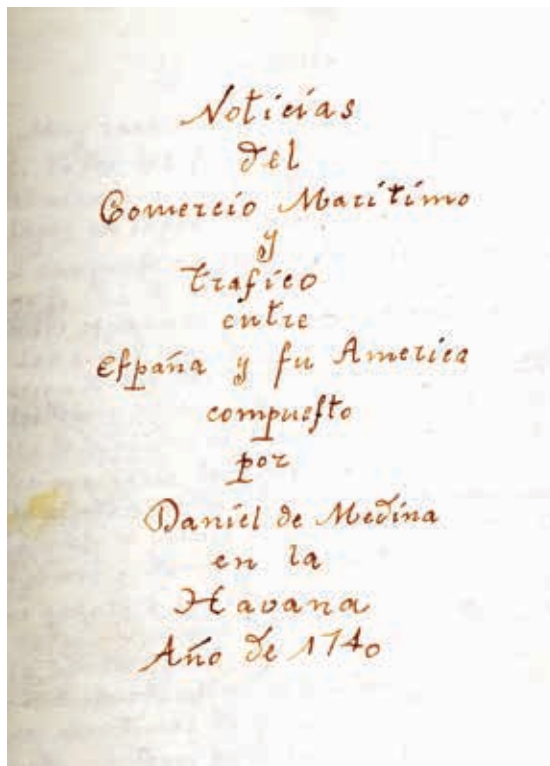 Noticias
del
Comercio Maritimo
y
trafico
entre
Eſpaña y ſu America
compueſto
por
Daniel de Medina
en la
Havana
Año de 1740